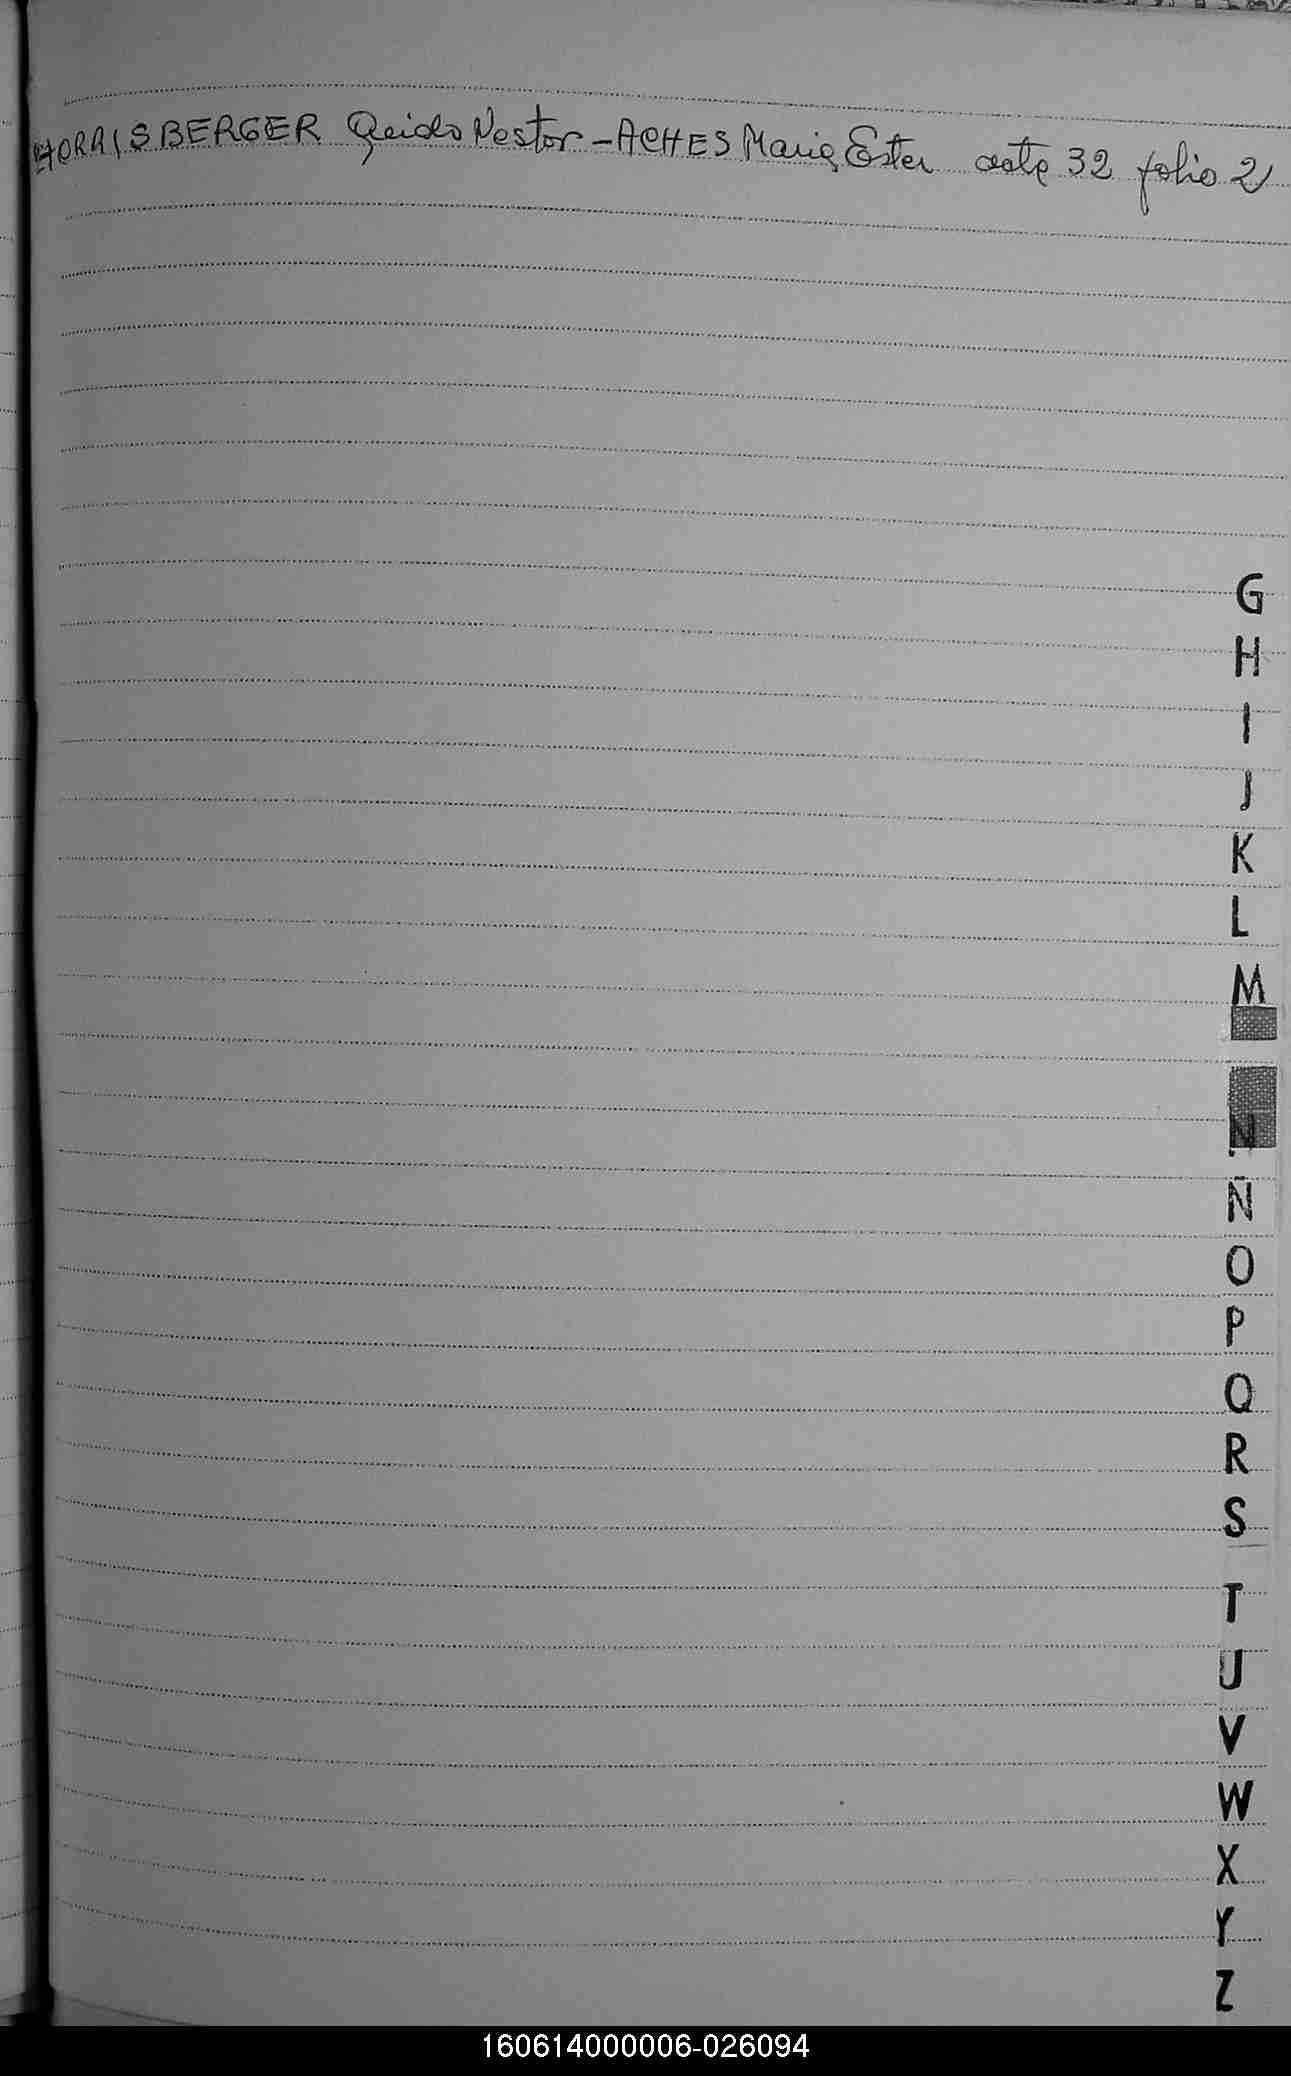 HORRISBERGER Guido Nestor - ACHES Maria Ester acta 32 folio 21
G
H
I
J
K
L
M
N
Ñ
O
P
Q
R
S
T
U
V
W
X
Y
Z
160614000006-026094